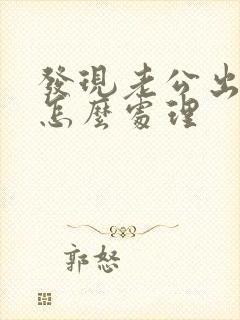 發現老公出
怎麼處理
郭怒